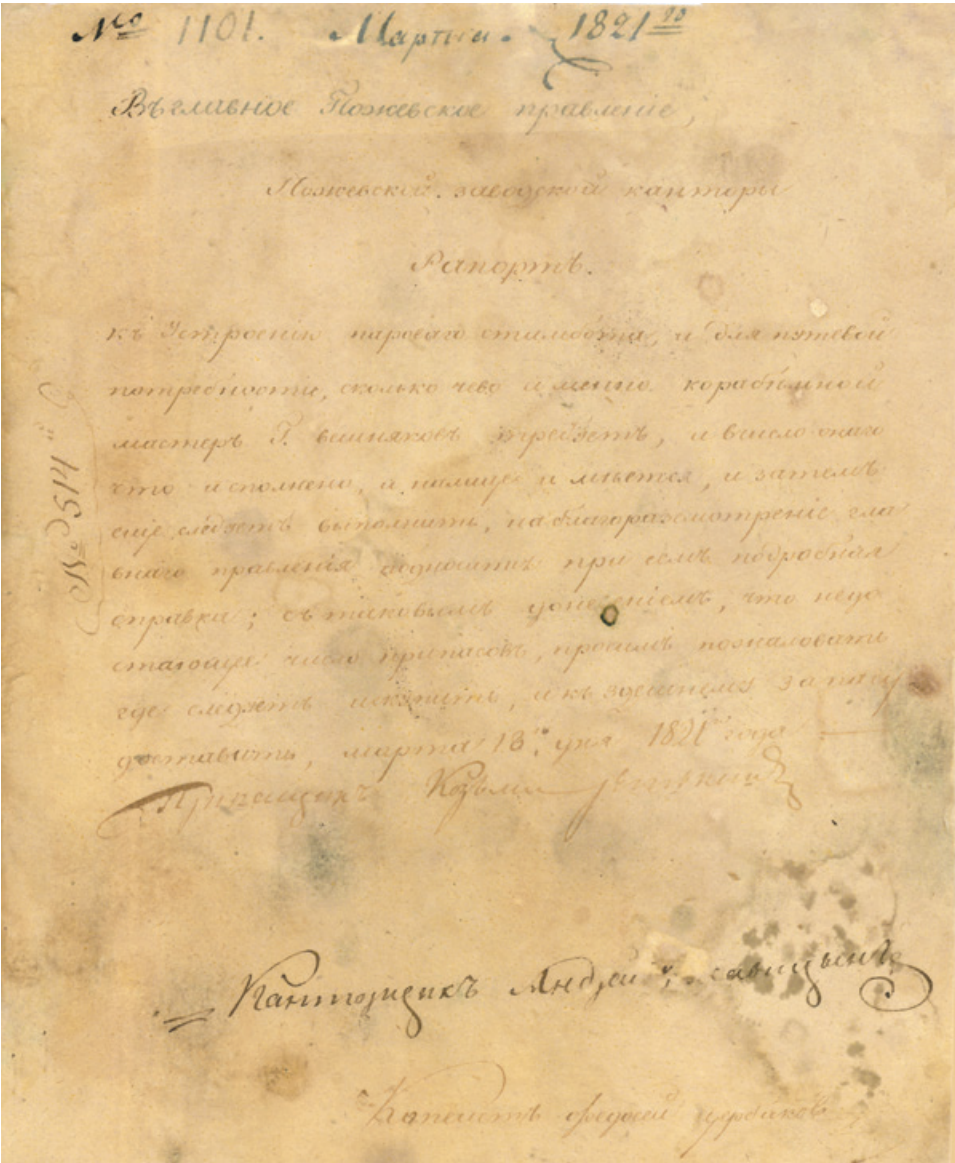 № 1101. Марта 1821го
Въ главное Пожевское правленіе,
Пожевской заводской канторы
Рапортъ.
къ Устроенію пароваго стимбота, и для путевой
потребности, сколько чево именно корабельной
мастеръ Г. вешняковъ требуетъ, и вчисло онаго
что исполнено, и налице имѣется, и затемъ
еще следуетъ выполнить, на благоразсмотреніе гла
внаго правленія подноситъ при семъ подробная
справка; съ таковымъ донесеніемъ, что недо
стающее число припасовъ, просимъ пожаловать
где следуетъ искупить, и къ здешнему заводу
доставить, марта 13го дня 1821го года
Прикащикъ Козьма
Канторщикъ Андрей
Копеистъ Федосей
№ 514